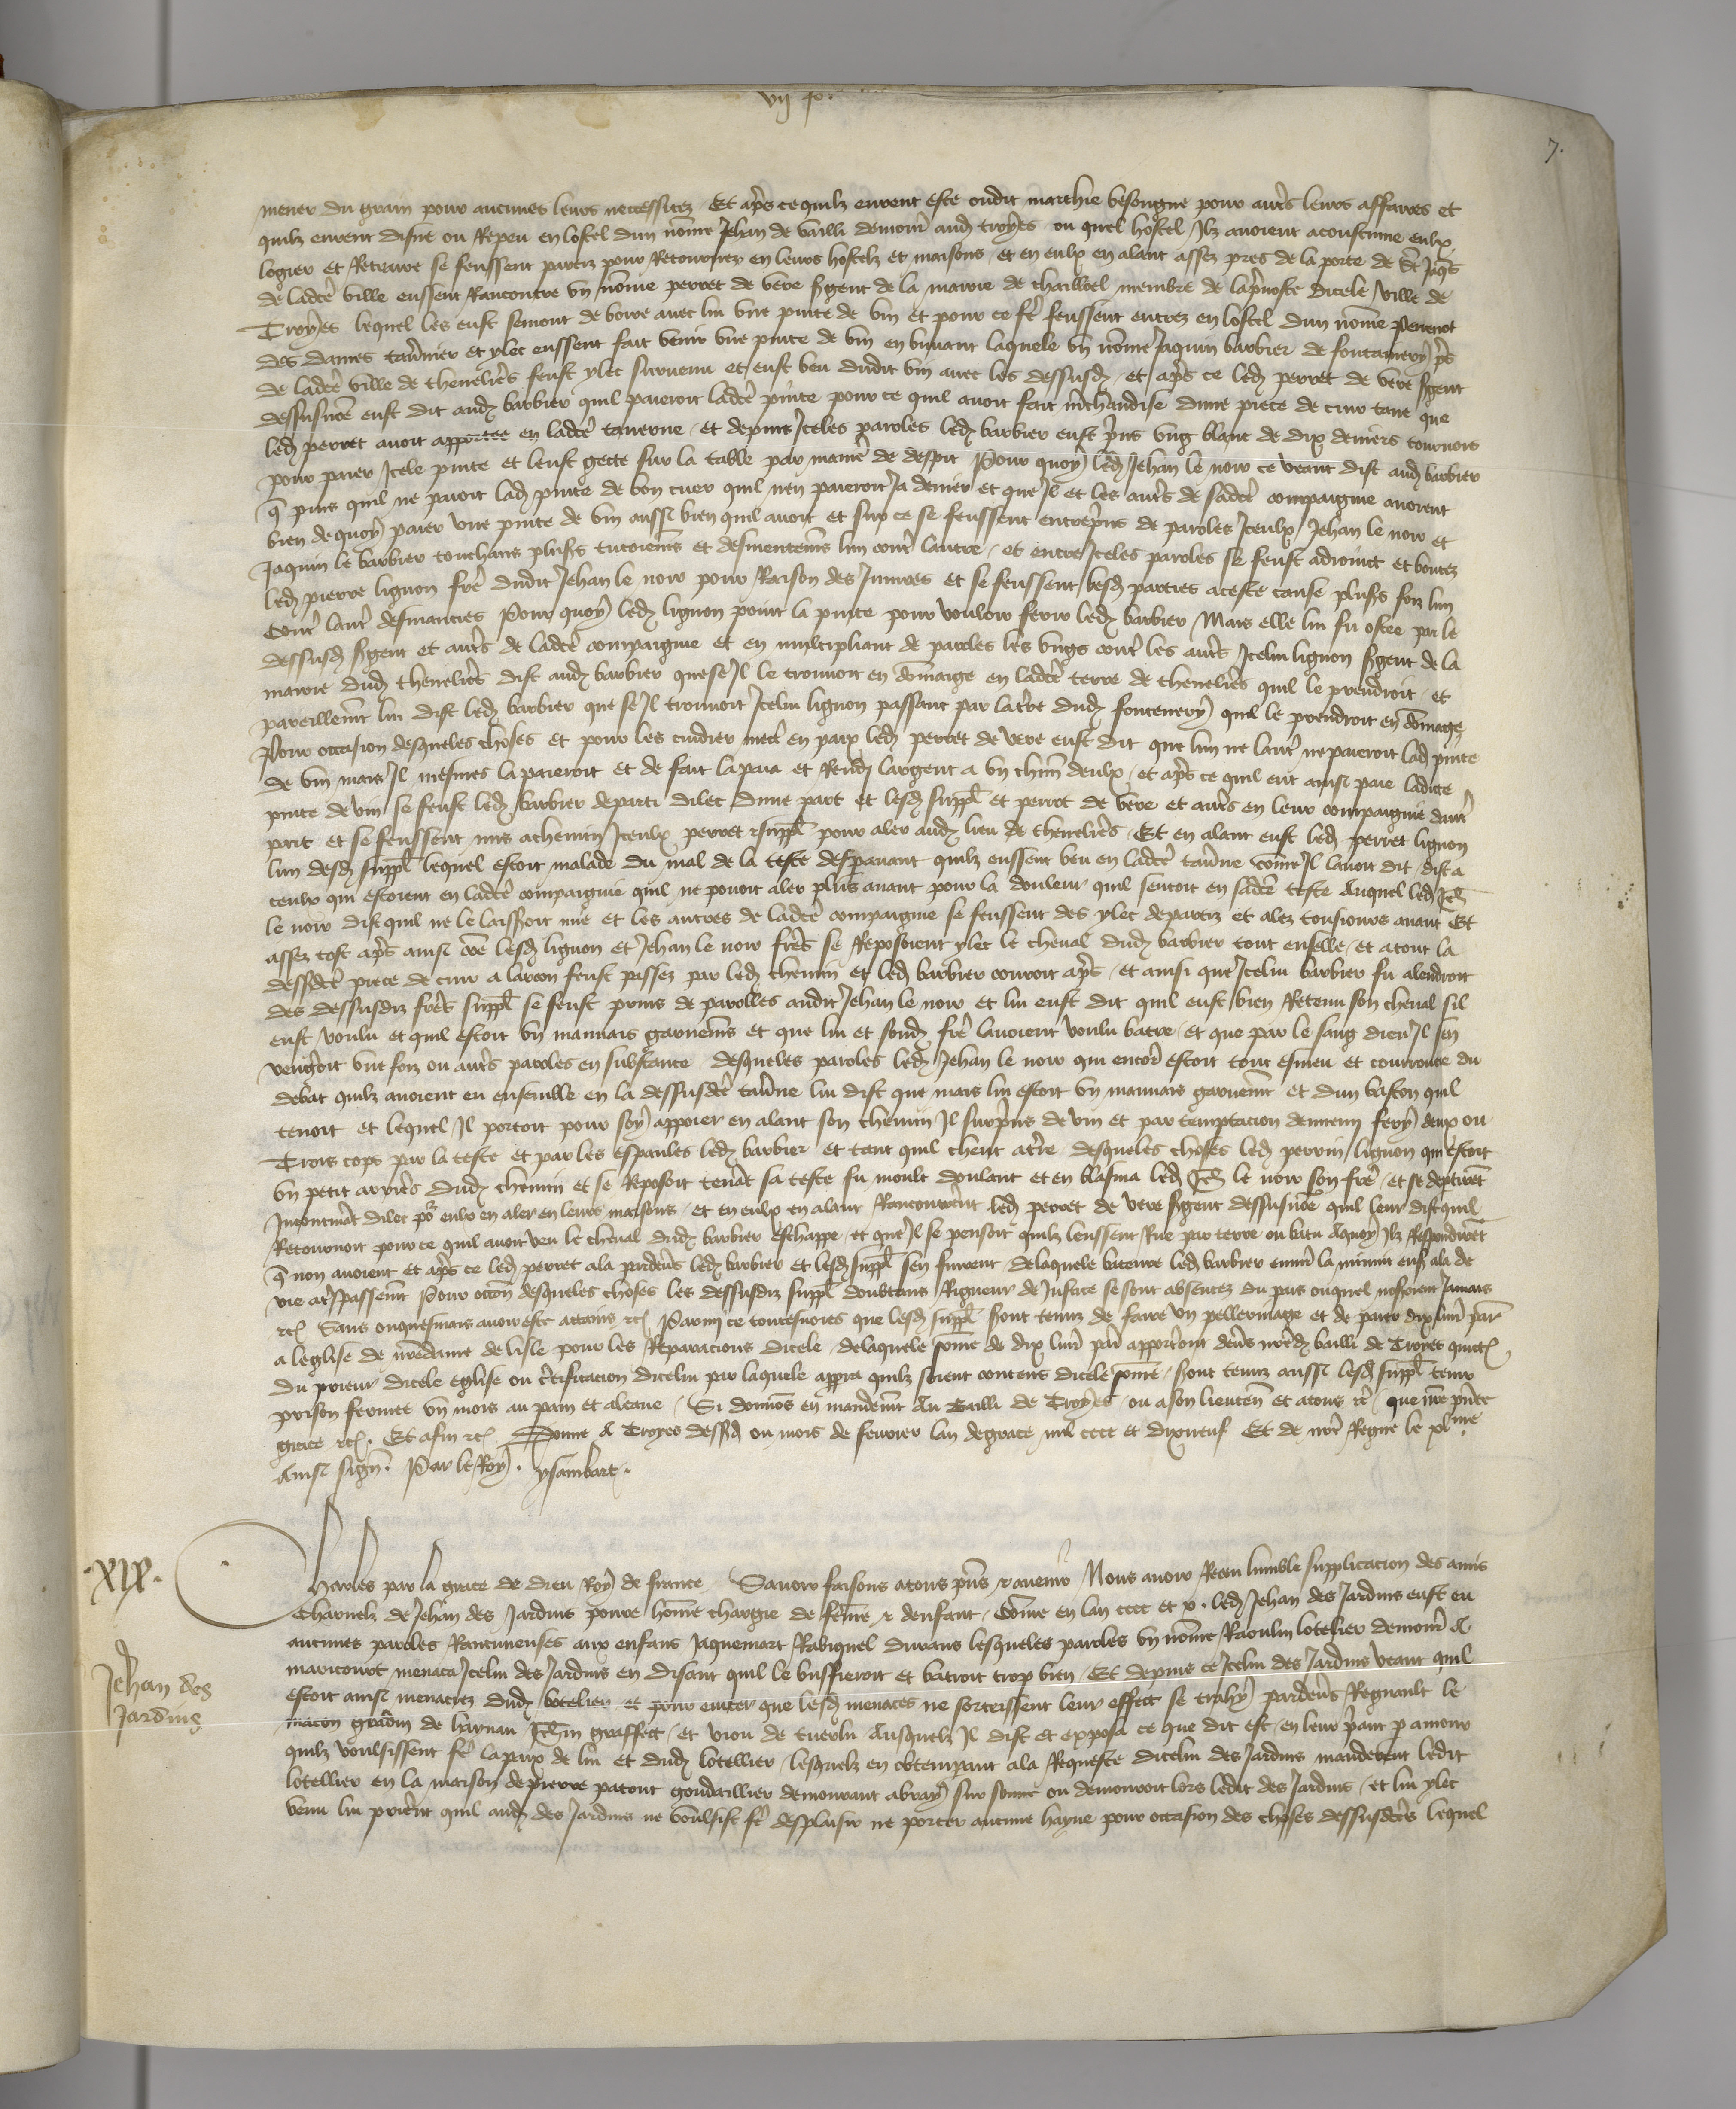 vij xx.
7.
mener du grain pour aucunes leurs necessitez Et apres ce quilz eurent este oudit marchie besongne pour autres leurs affaires et
quilz eurent disne ou Repeu en lostel dun nome Jehan de vailli demour aud troyes ou quel hostel Ilz auoient acoustume eulx
logier et Retraire se feussent partiz pour Retourner en leurs hostelz et maisons et en eulx en alant assez pres de la porte de st Jaqs
de ladce ville eussent Rancontre vn nome perret de vere sgent de la mairie de chailloel membre de la puoste dicele ville de
Troyes lequel les eust semont de boire auec lui vne pinte de vin et pour ce fe feussent entrez en lostel dun nome perrenot
des dames tauernier et ylec eussent fait venir vne pinte de vin en buuant laquele vn nome Jaquin barbier de fontannery ps
de ladce ville de thenelieres feust ylec suruenu et eust beu dudit vin auec les dessusd et apres ce led perret de vere sgent
dessusnome eust dit aud barbier quil paieroit ladce pinte pour ce quil auoit fait mchandise dune piece de cuir tane que
led perret auoit apportee en ladce tauerne et depuis Iceles paroles led barbier eust pris vng blanc de dix deniers tournois
pour paier Icele pinte et leust gecte sur la table par maniere de despit Pour quoy led Jehan le noir ce veant dist aud barbier
q puis quil ne paioit lad pinte de bon cuer quil nen paieroit Ja denier et que Il et les autres de sadce compaignie auoient
bien de quoy paier vne pinte de vin aussi bien quil auoit et sur ce se feussent entrepris de paroles Iceulx Jehan le noir et
Jaquin le barbier touchans plusrs tutoiemens et desmentemens lun contre lautre et entre Iceles paroles se feust adioinct et boutez
led pierre lignon fre dudit Jehan le noir pour Raison des Iniures et se feussent lesd parties a ceste cause plusrs foiz lun
contre lautre desmanties Pour quoy led lignon print la pinte pour vouloir ferir led barbier Mais elle lui fu ostee par le
dessusd sgent et autres de ladce compaignie et en multipliant de paroles les vngs contre les autres Icelui lignon sgent de la
mairie dud thenelieres dist aud barbier que se Il le trouuoit en domaige en ladce terre de thenelieres quil le prendroit et
pareillement lui dist led barbier que se Il trouuoit Icelui lignon passant par la tre dud fontenery quil le prendroit en domage
Pour occasion desqueles choses et pour les cuidier mectre en paix led perret de vere eust dit que lun ne lautre ne paieroit lad pinte
de vin mais Il mesmes la paieroit et de fait la paia et Rendi largent a vn chun deulx et apres ce quil eut ainsi paie ladicte
pinte de vin se feust led barbier departi dilec dune part et lesd suppl et perret de vere et autres en leur compaignie dautre
part et se feussent mis a chemin Iceulx perret & suppl pour aler aud lieu de thenelieres Et en alant eust led perret lignon
lun desd suppl lequel estoit malade du mal de la teste desparauant quilz eussent beu en ladce tauerne come Il lauoit dit dist a
ceulx qui estoient en ladce compaignie quil ne pouoit aler plus auant pour la douleur quil sentoit en sadce teste Auquel led Jeh
le noir dist quil ne le lairroit mie et les autres de ladce compaignie se feussent des ylec departiz et alez tousiours auant Et
assez tost apres ainsi come lesd lignon et Jehan le noir freres se Reposoient ylec le cheual dud barbier tout enselle et a tout la
dessusdce piece de cuir a larcon feust passez par led chemin et led barbier couroit apres et ainsi que Icelui barbier fu alendroit
des dessusdiz freres suppl se feust prins de parolles audit Jehan le noir et lui eust dit quil eust bien Retenu son cheual sil
eust voulu et quil estoit vn mauuais garnemens et que lui et sond fre lauoient voulu batre et que par le sang dieu Il sen
vengroit vne foiz ou autres paroles en substance desqueles paroles led Jehan le noir qui encore estoit tout esmeu et courrouce du
debat quilz auoient eu ensemble en la dessusdce tauerne lui dist que mais lui estoit vn mauuais garnement et dun baston quil
tenoit et lequel Il portoit pour soy appoier en alant son chemin Il surpris de vin et par temptacion dennemi fery deux ou
Trois cops par la teste et par les espaules led barbier et tant quil cheut a tre desqueles choses led perrin lignon qui estoit
vn petit arrieres dud chemin et se Reposoit tenat sa teste fu moult doulant et en blasma led Jeh le noir son frere et se deptirent
Incontinat dilec po eulx en aler en leurs maisons et en eulx en alant Rancontrerent led perret de vere sgent dessusnome quil leur dist quil
Retournoit pour ce quil auoit veu le cheual dud barbier eschappe et que Il se pensoit quilz leussent Rue par terre ou batu A quoy Ilz Respondirent
q non auoient et apres ce led perret ala pardeuers led barbier et lesd suppl sen furent delaquele bateure led barbier enuiron la minuit ens ala de
vie a trespassement Pour occon desqueles choses les dessusdiz suppl doubtans Rigueur de Justice se sont absentez du pais ouquel noseroient Jamais
etc Sans onquesmais auoir este attains etc Parmi ce toutesuoies que lesd suppl sont tenuz de faire vn pellerinage et de paier dix liures par
a leglise de nredame de lisle pour les Reparacions dicele delaquele some de dix liures par apporteront deuers nred bailli de Troyes quitt
du prieur dicele eglise ou certificacion dicelui par laquele appra quilz soient contens dicele some sont tenuz aussi lesd suppl tenir
prison fermee vn mois au pain et a leaue Si donnos en mandement Au Bailli de Troyes ou a son lieuten et a tous etc que nre pnte
grace etc. Et afin etc Donne A Troyes dessusd ou mois de feurier lan degrace mil cccc et dixneuf Et de nre Regne le xl me
Ainsi sign. Par le Roy. ysambart.
.XIX.
Jehan des
Jardins
Charles par la grace de dieu Roy de france Sauoir faisons a tous pns & auenir Nous auoir Receu lumble supplicacion des amis
Charnelz de Jehan des Jardins poure home chargie de feme & denfant Come en lan cccc et x. led Jehan des Jardins eust eu
aucunes paroles Rancuneuses aux enfans Jaquemart Rabiquel durans lesqueles paroles vn nome Raoulin lotelier demour A
maricourt menaca Icelui des Jardins en disant quil le buffieroit et batroit trop bien Et depuis ce Icelui des Jardins veant quil
estoit ainsi menaciez dud botelier et pour euiter que lesd menaces ne sortissent leur effect se trahy pardeuers Regnault le
macon de harnau graffeit et viou de tuerlu Ausquelz Il dist et exposa ce que dit est en leur priant p amour
quilz voulsissent fe la paix de lui et dud lotellier lesquelz en obtemperant ala Requeste dicelui des Jardins manderent ledit
lotellier en la maison de pierre patout goudaillier demourant a bray sur somme ou demouroit lors ledit des Jardins et lui ylec
venu lui prierent quil aud des Jardins ne voulsist fe desplaisir ne porter aucune hayne pour occasion des choses dessusdces lequel